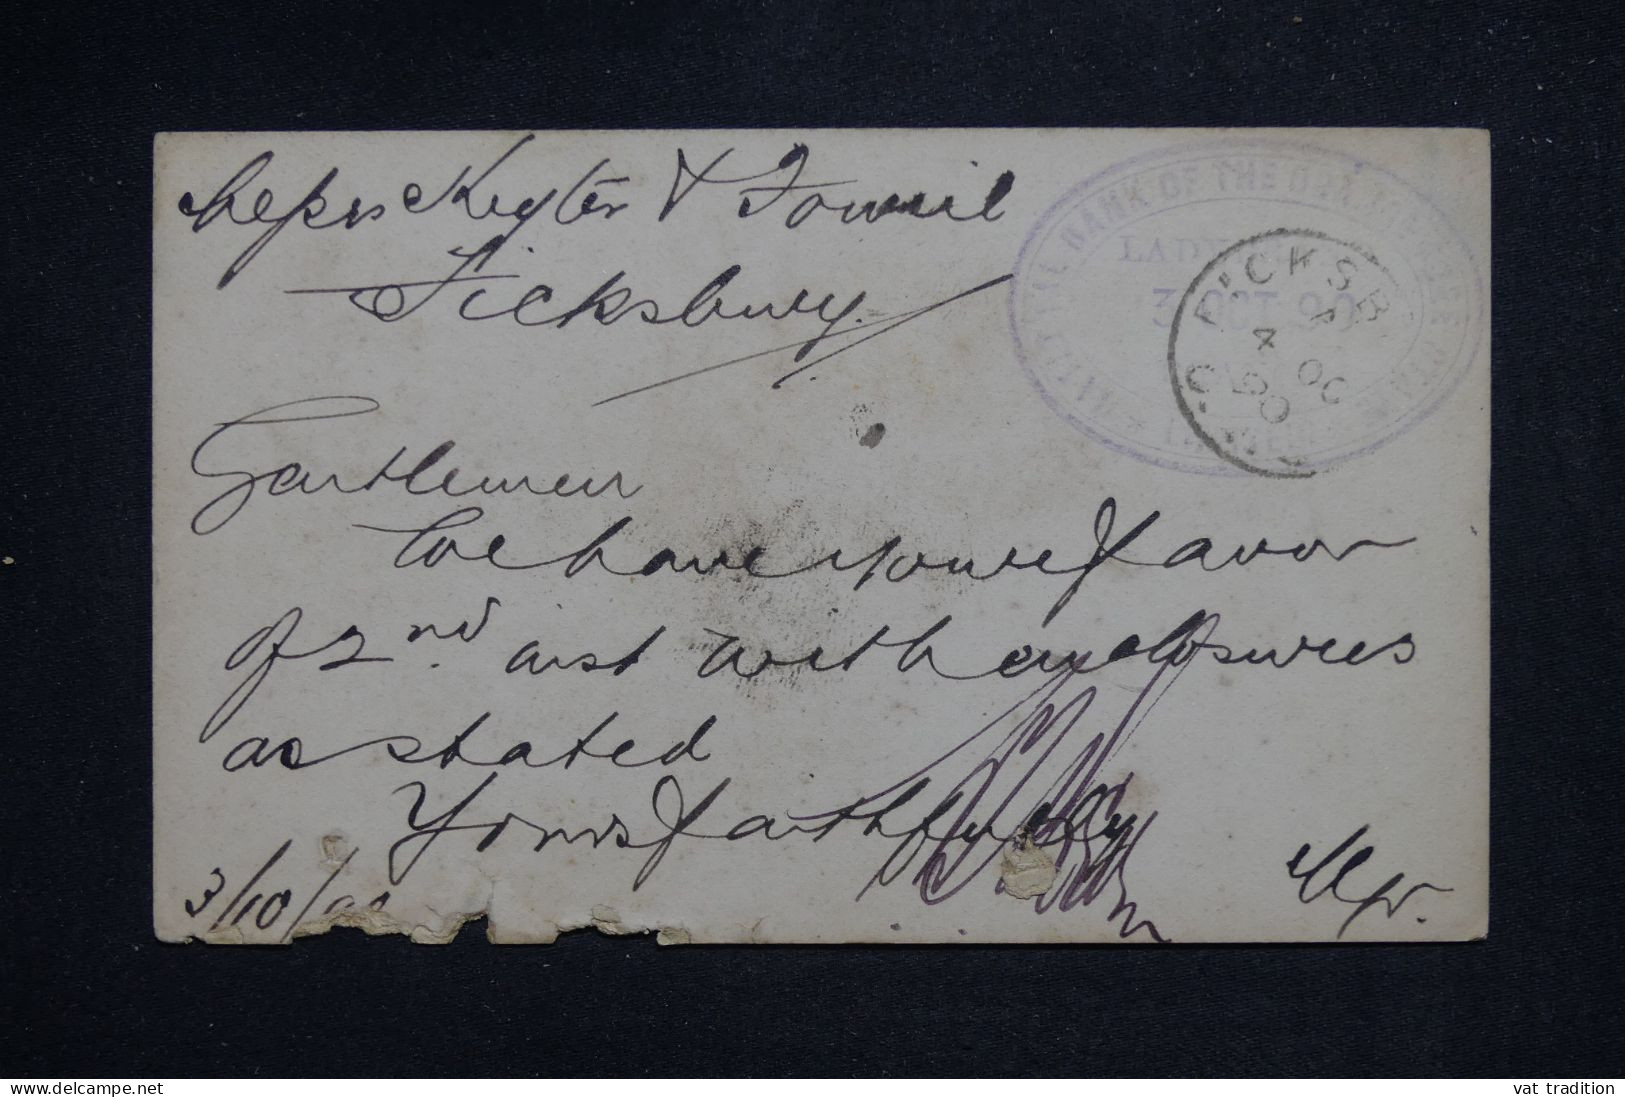 Messrs Keyter &
Ficksbury.
NATIONAL BANK OF THE ORANGE FREE STATE
LADYBRAND
3 OCT 90
FICKSB
4 OC
90
Gentlemen
We have your favor
of 2nd. inst with enclosures
as stated
Yours faithfully
3/10/90
Mgr.
www.delcampe.net
vat tradition